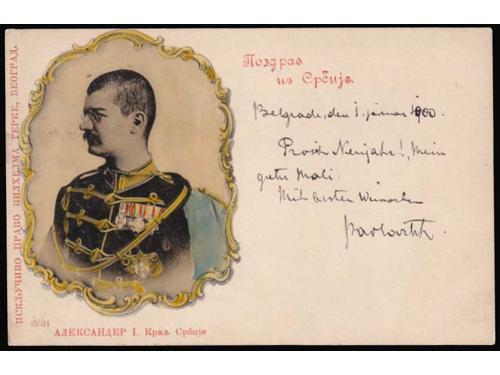 ИСКЉУЧИВО ПРАВО ВИЛХЕЛМА ГЕРКЕ, БЕОГРАД.
Поздрав
из Србије.
Belgrade, den 1. januar 1900
Prosit Neujahr!, Mein
guter Mali.
Mit besten Wünschen
Pavlovitch
АЛЕКСАНДЕР I. Краљ Србије